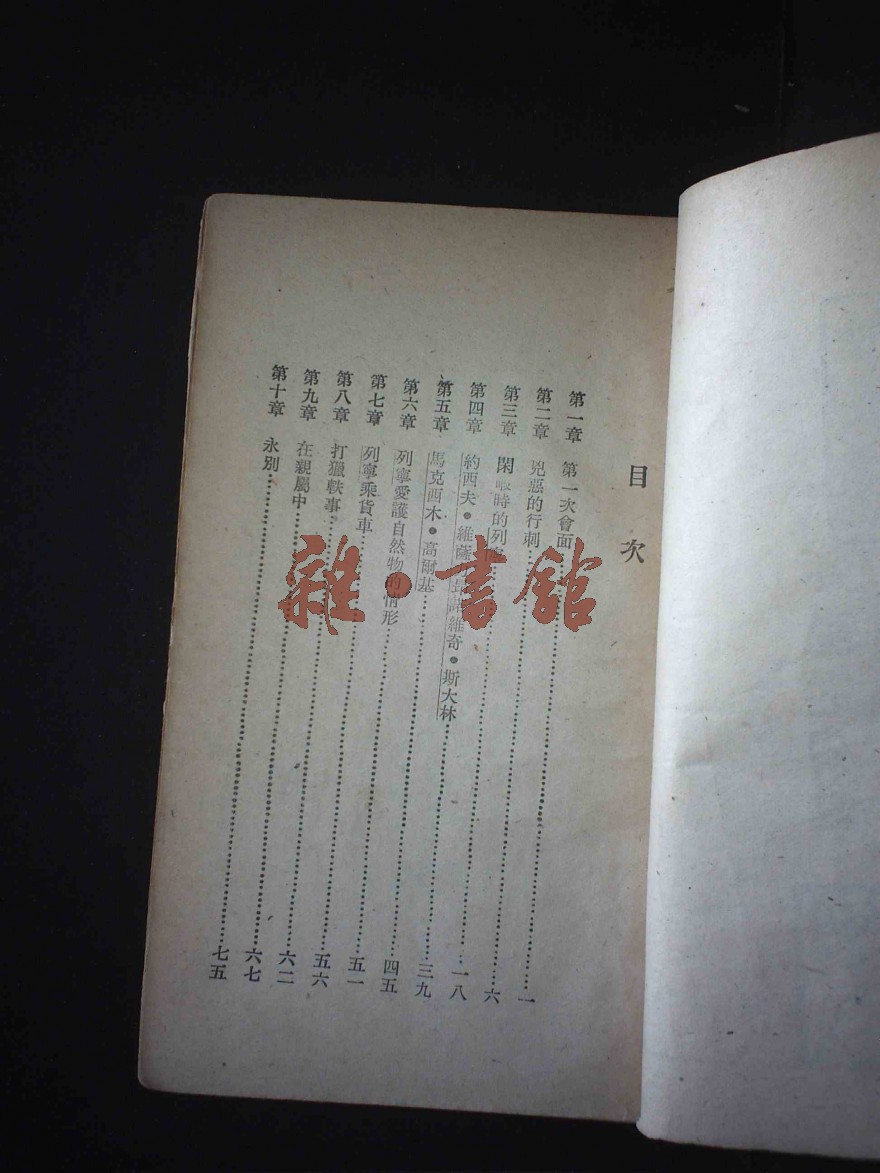 目次
第一章 第一次會面……一
第二章 兇惡的行刺……六
第三章 閑暇時的列寧……一八
第四章 約西夫●維薩諾維奇●斯大林……三九
第五章 馬克西木●高爾基……四五
第六章 列寧愛護自然物的情形……五一
第七章 列寧乘貨車……五六
第八章 打獵軼事……六二
第九章 在親屬中……六七
第十章 永別……七五
雜·書館